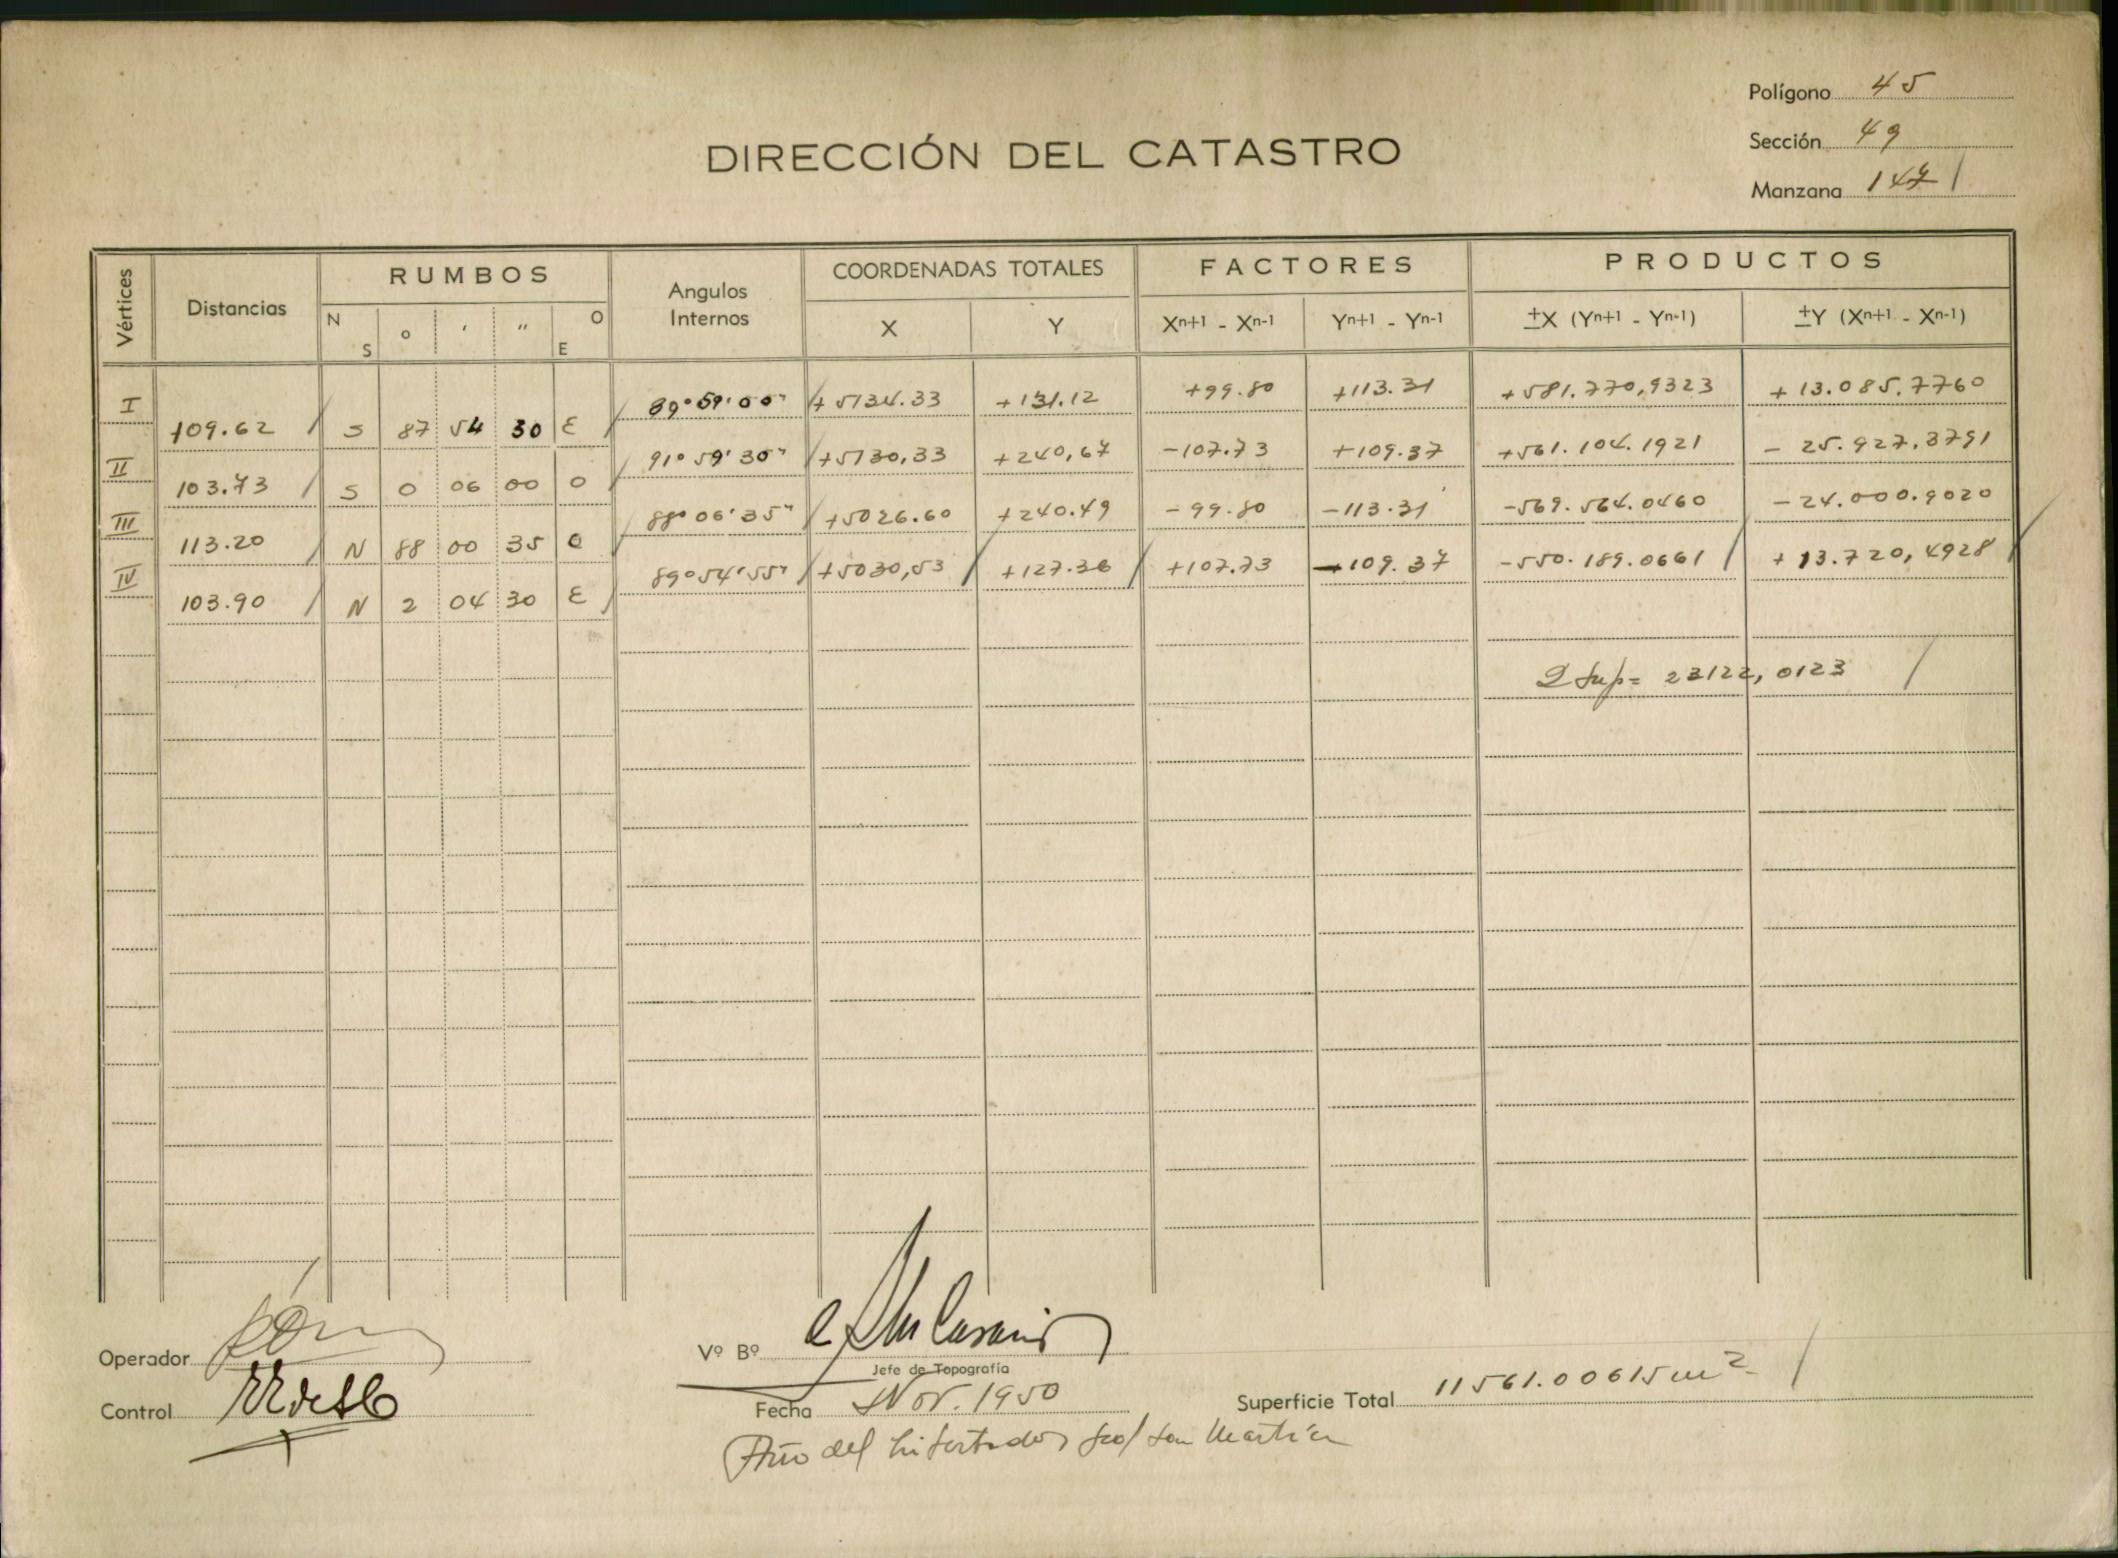 Polígono 45
DIRECCIÓN DEL CATASTRO
Sección 49
Manzana 147
Vértices Distancias RUMBOS Angulos Internos COORDENADAS TOTALES FACTORES PRODUCTOS
N S o ' " O E X Y Xn+1 - Xn-1 Yn+1 - Yn-1 ±X (Yn+1 - Yn-1) ±Y (Xn+1 - Xn-1)
I 89°59'00" +5134.33 +131.12 +99.80 +113.31 +581.770,9323 +13.085.7760
109.62 S 87 54 30 E
II 91°59'30" +5130,33 +240,67 -107.73 +109.37 +561.104.1921 - 25.927,3791
103.73 S 0 06 00 O
III 88°06'35" +5026.60 +240.49 -99.80 -113.31 -569.564.0460 -24.000.9020
113.20 N 88 00 35 O
IV 89°54'55" +5030,53 +127.36 +107.73 -109.37 -550.189.0661 +13.720,4928
103.90 N 2 04 30 E
2 Sup= 23122,0123
Operador
Vº Bº
Jefe de Topografía
Control
Fecha Nov. 1950
Superficie Total 11561.00615 m2
Año del Libertador Gral San Martín